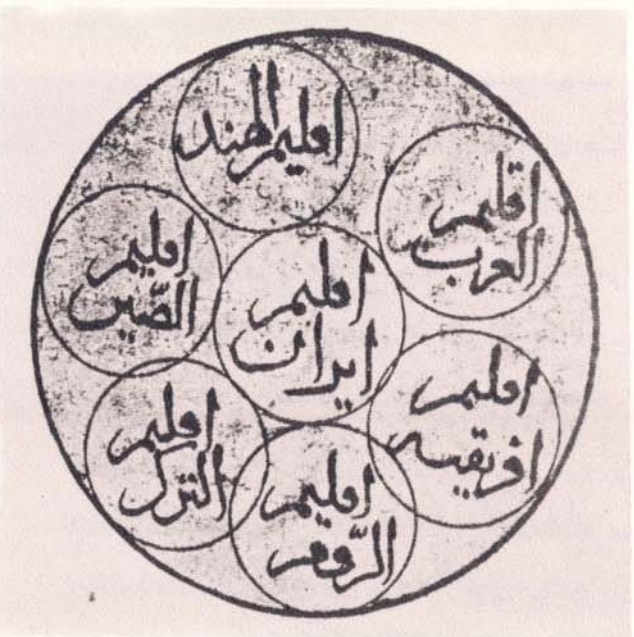 اقليم الهند
اقليم
العرب
اقليم
الصّين
اقليم
ايران
اقليم
افريقيه
اقليم
الترك
اقليم
الرّوم